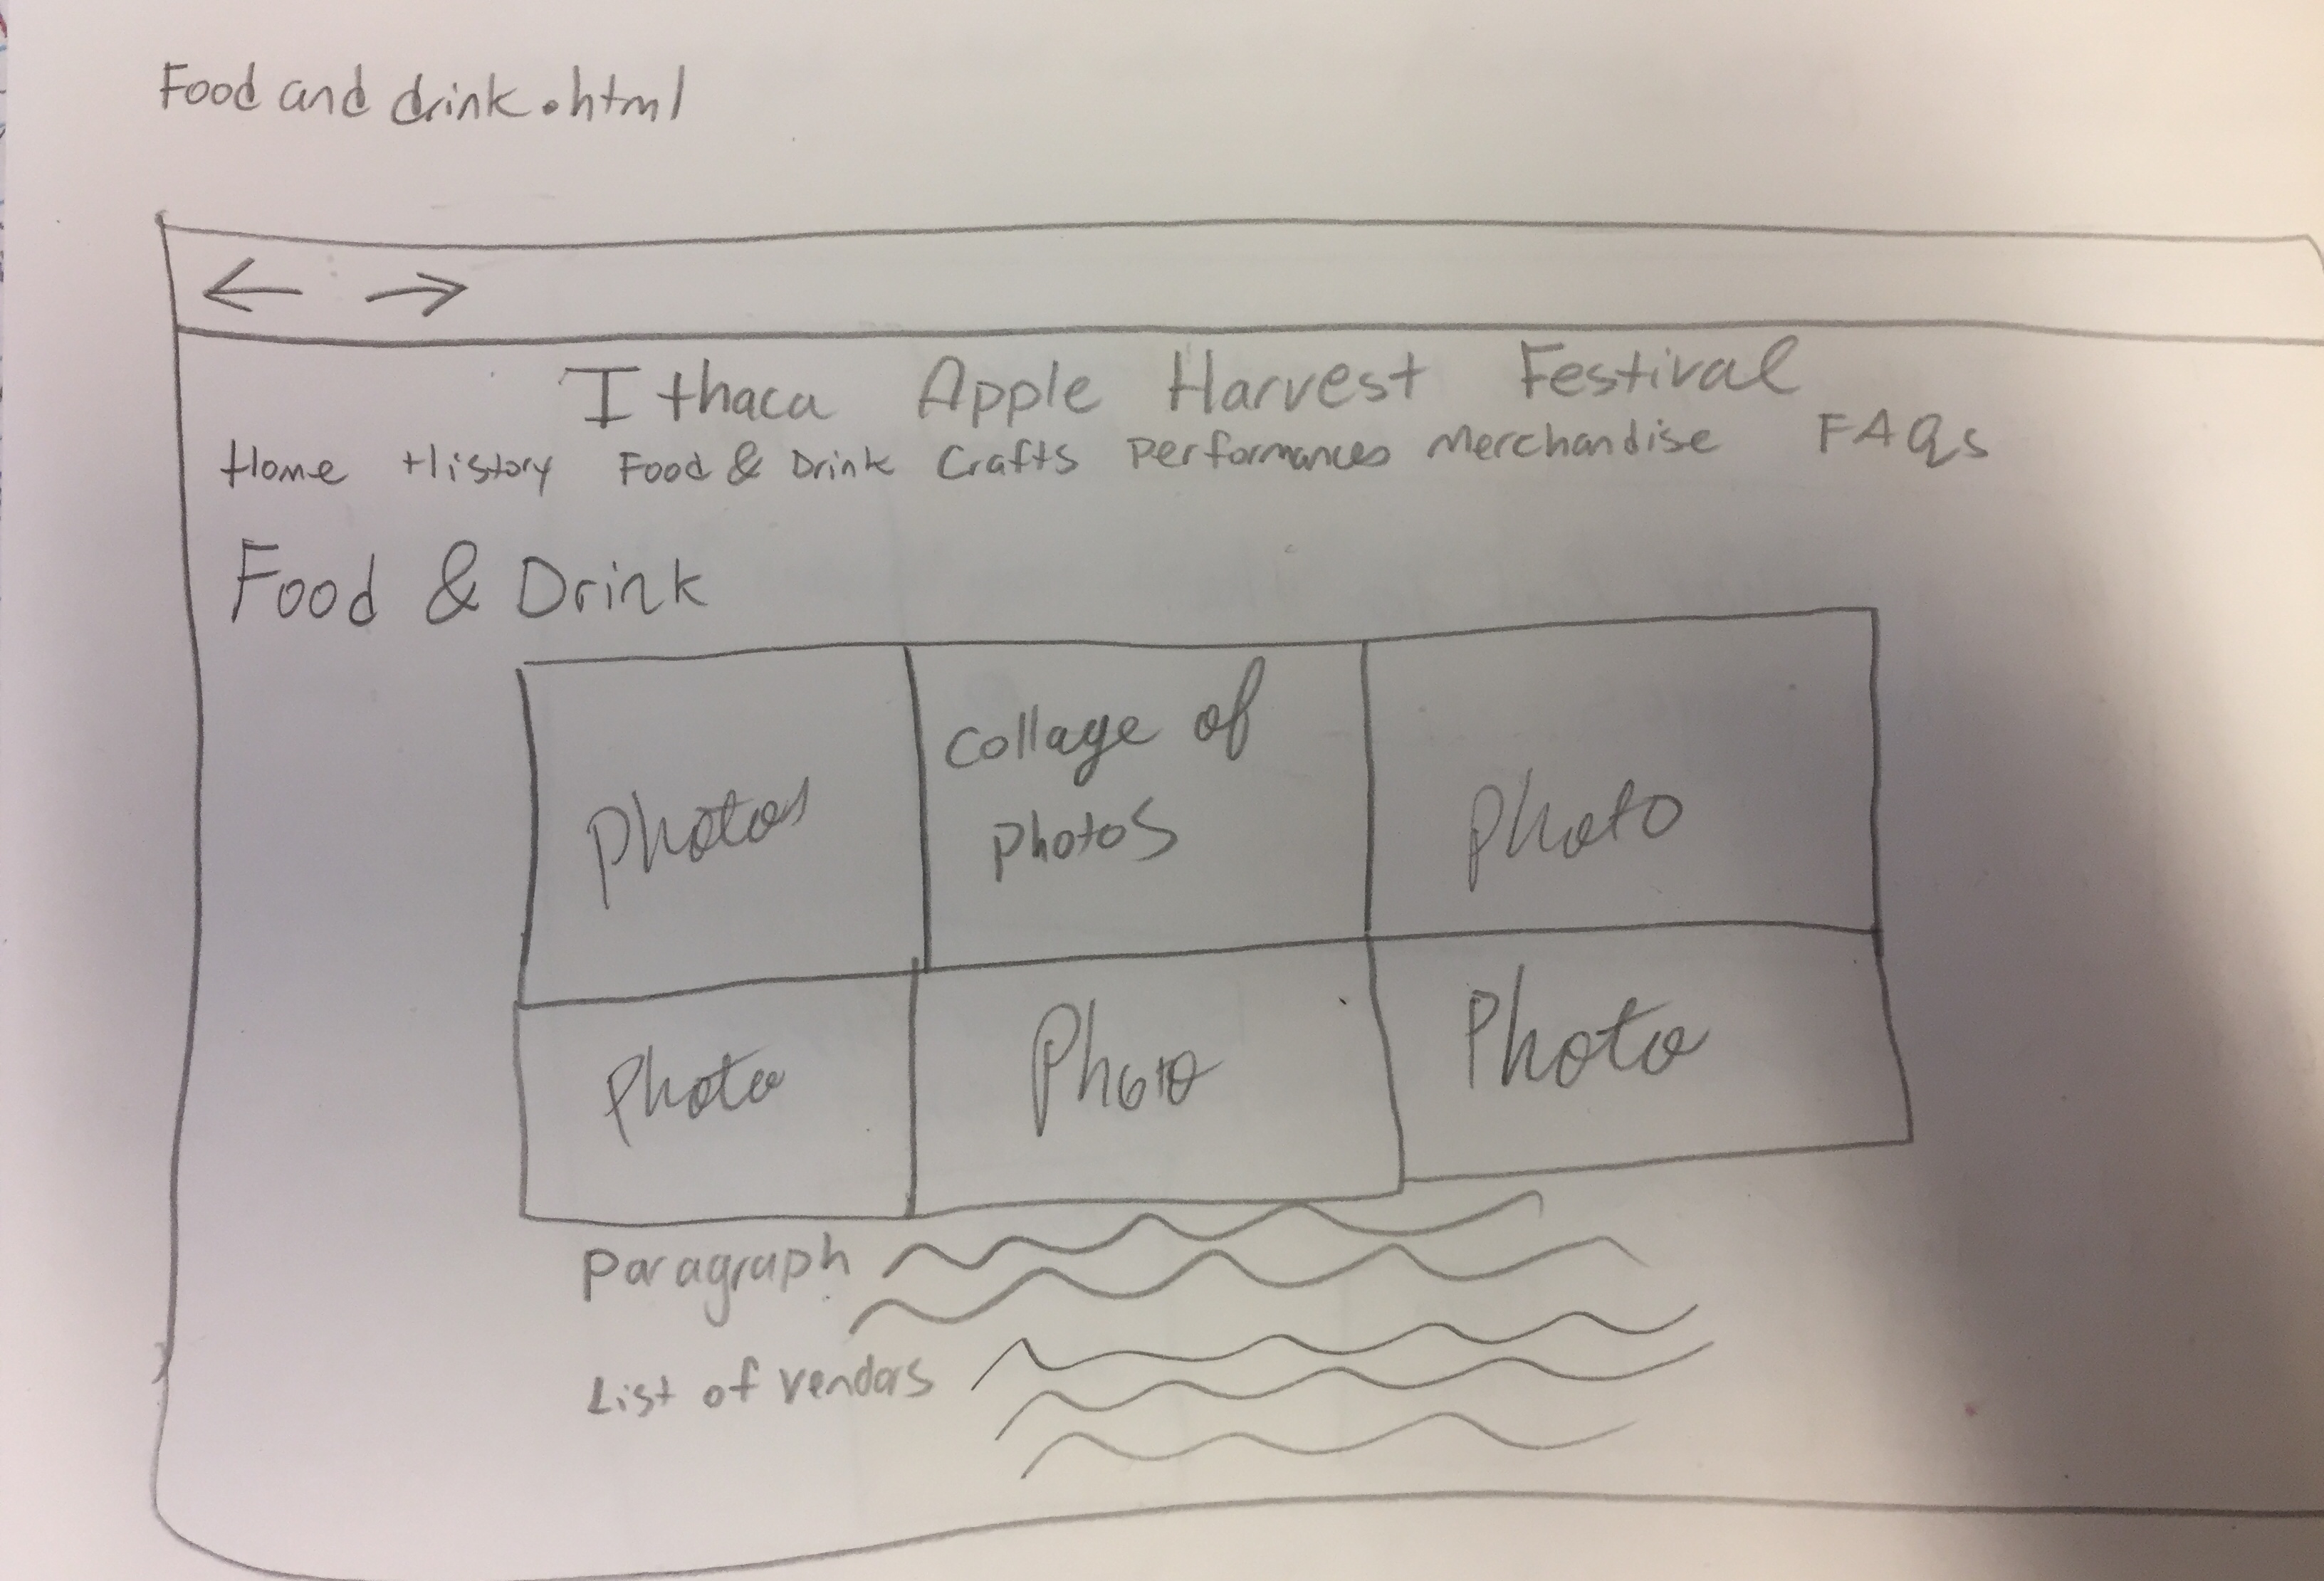 Food and drink.html
Ithaca Apple Harvest Festival
Home History Food & Drink Crafts Performances Merchandise FAQs
Food & Drink
Photos
collage of
photos
Photo
Photo
Photo
Photo
Paragraph
List of vendors